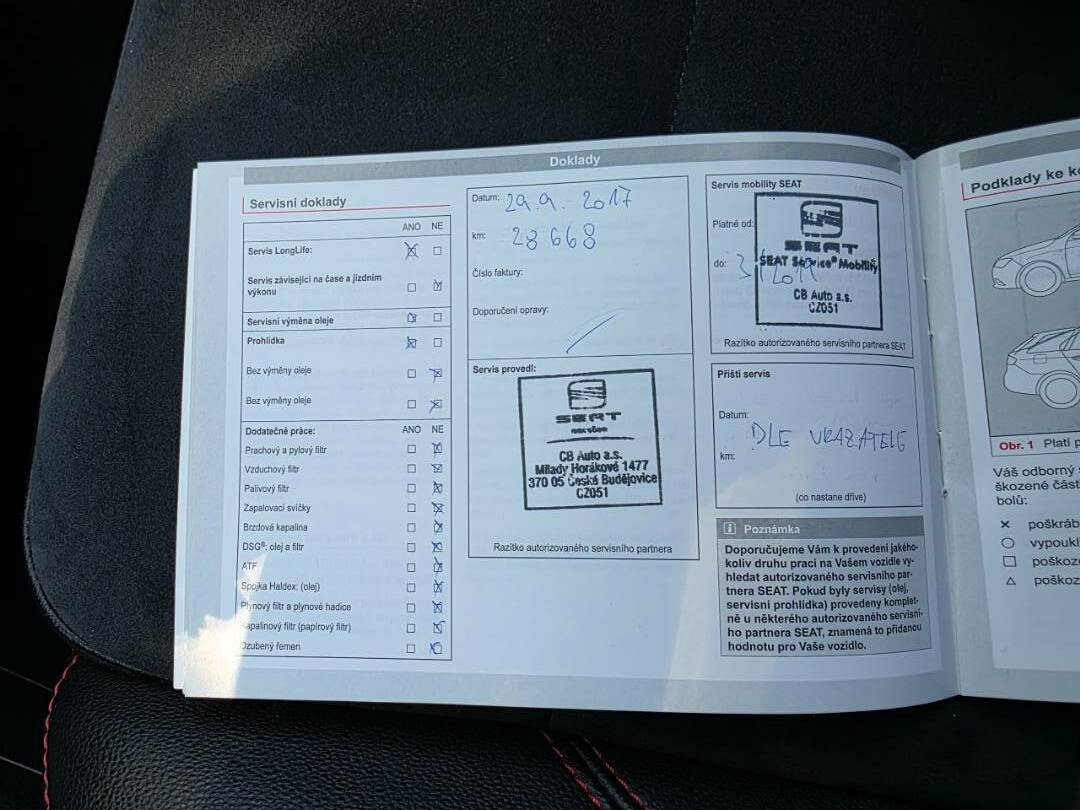 Doklady
Servisní doklady
ANO NE
Servis LongLife:
Servis závisející na čase a jízdním
výkonu
Servisní výměna oleje
Prohlídka
Bez výměny oleje
Bez výměny oleje
Dodatečné práce: ANO NE
Prachový a pylový filtr
Vzduchový filtr
Palivový filtr
Zapalovací svíčky
Brzdová kapalina
DSG®: olej a filtr
ATF
Spojka Haldex: (olej)
Plynový filtr a plynové hadice
Kapalinový filtr (papírový filtr)
Ozubený řemen
Datum: 29.9.-2017
km: 28 668
Číslo faktury:
Doporučení opravy:
Servis provedl:
SEAT
CB Auto a.s.
Milady Horákové 1477
370 05 České Budějovice
CZ051
Razítko autorizovaného servisního partnera
Servis mobility SEAT
Platné od:
SEAT
SEAT Service® Mobility
do: 2019
CB Auto a.s.
CZ051
Razítko autorizovaného servisního partnera SEAT
Příští servis
Datum:
DLE UKAZATELE
km:
(co nastane dříve)
i Poznámka
Doporučujeme Vám k provedení jakého-
koliv druhu prací na Vašem vozidle vy-
hledat autorizovaného servisního par-
tnera SEAT. Pokud byly servisy (olej,
servisní prohlídka) provedeny komplet-
ně u některého autorizovaného servisní-
ho partnera SEAT, znamená to přidanou
hodnotu pro Vaše vozidlo.
Podklady ke
Obr. 1 Platí
Váš odborný
škozené část
bolů:
× poškráb
○ vypoukl
□ poškoz
△ poškoz